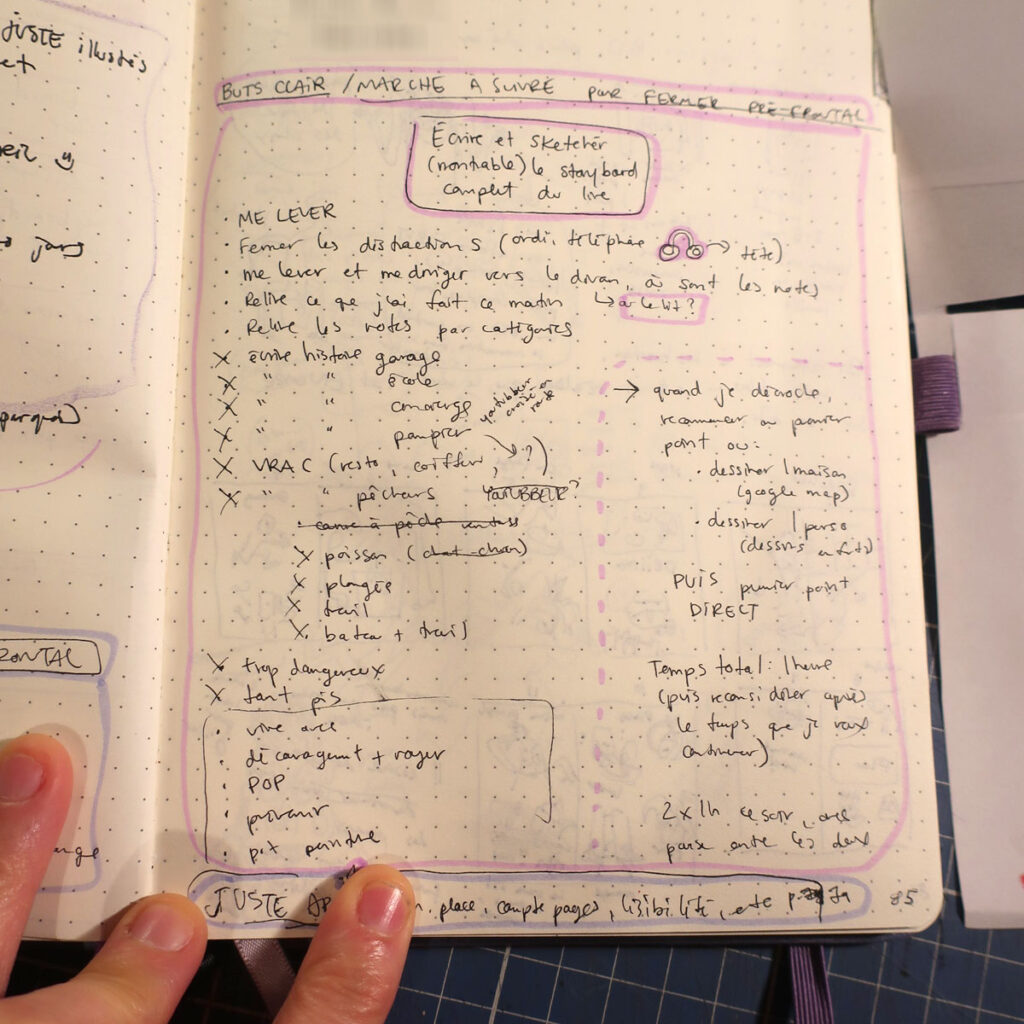 JUSTE illustrés
et
jours
RONTAL
BUTS CLAIR / MARCHE À SUIVRE pour FERMER PRÉ-FRONTAL
Écrire et sketcher
(montrable) le storyboard
complet du livre
• ME LEVER
• Fermer les distractions (ordi, téléphone → tête)
• me lever et me diriger vers le divan, où sont les notes
• Relire ce que j'ai fait ce matin ↳ ou le lit?
• Relire les notes par catégories
X écrire histoire garage
X " " école
X " " concierge
X " " pompier
X VRAC (resto, coiffeur, ?)
X " " pêcheurs YOUTUBBEUR?
• canne à pêche
X poisson (chat-chan)
X plongée
X trail
X bateau + trail
X trop dangereux
X tant pis
• vive
• découragement + rayer
• POP
• 
• pot peinture
→ quand je décroche,
recommencer au premier
point ou:
• dessiner 1 maison
(google map)
• dessiner 1 perso
(dessins enfants)
PUIS premier point
DIRECT
Temps total: 1 heure
(puis reconsidérer après
le temps que je veux
continuer)
2 x 1h ce soir, avec
pause entre les deux
JUSTE place, compte pages, lisibilité, etc
85